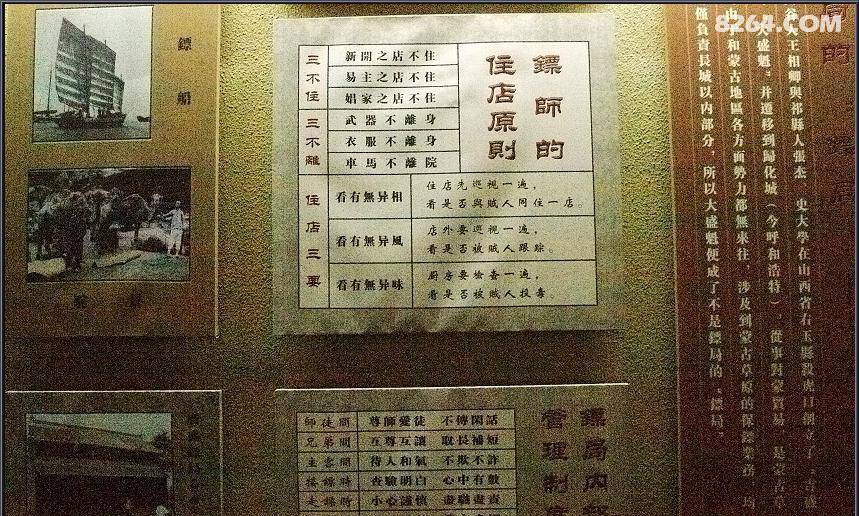 8264.COM
鏢船
鏢師的
住店原則
三不住
新開之店不住
易主之店不住
娼家之店不住
三不離
武器不離身
衣服不離身
車馬不離院
住店三要
看有無异相
住店先巡視一遍，
看是否與賊人同住一店。
看有無异風
店外要巡視一遍，
看是否被賊人跟踪。
看有無异味
厨房要檢查一遍，
看是否被賊人投毒。
鏢局内部
管理制度
師徒間 尊師愛徒 不傳閑話
兄弟間 互尊互讓 取長補短
主客間 待人和氣 不欺不詐
接鏢時 查驗明白 心中有數
走鏢時 小心謹慎 盡職盡責
谷大王相卿與祁縣人張杰、史大學在山西省右玉縣殺虎口創立了“吉盛
大盛魁”，并遷移到歸化城（今呼和浩特），從事對蒙貿易，是蒙古草
和蒙古地區各方面勢力都無來往，涉及到蒙古草原的保鏢業務，均
僅負責長城以内部分，所以大盛魁便成了不是鏢局的“鏢局”